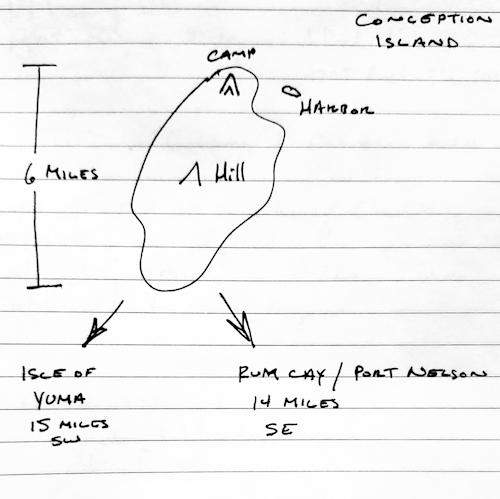 CONCEPTION
ISLAND
CAMP
HARBOR
6 MILES
Hill
ISLE OF
YUMA
15 MILES
SW
RUM CAY / PORT NELSON
14 MILES
SE